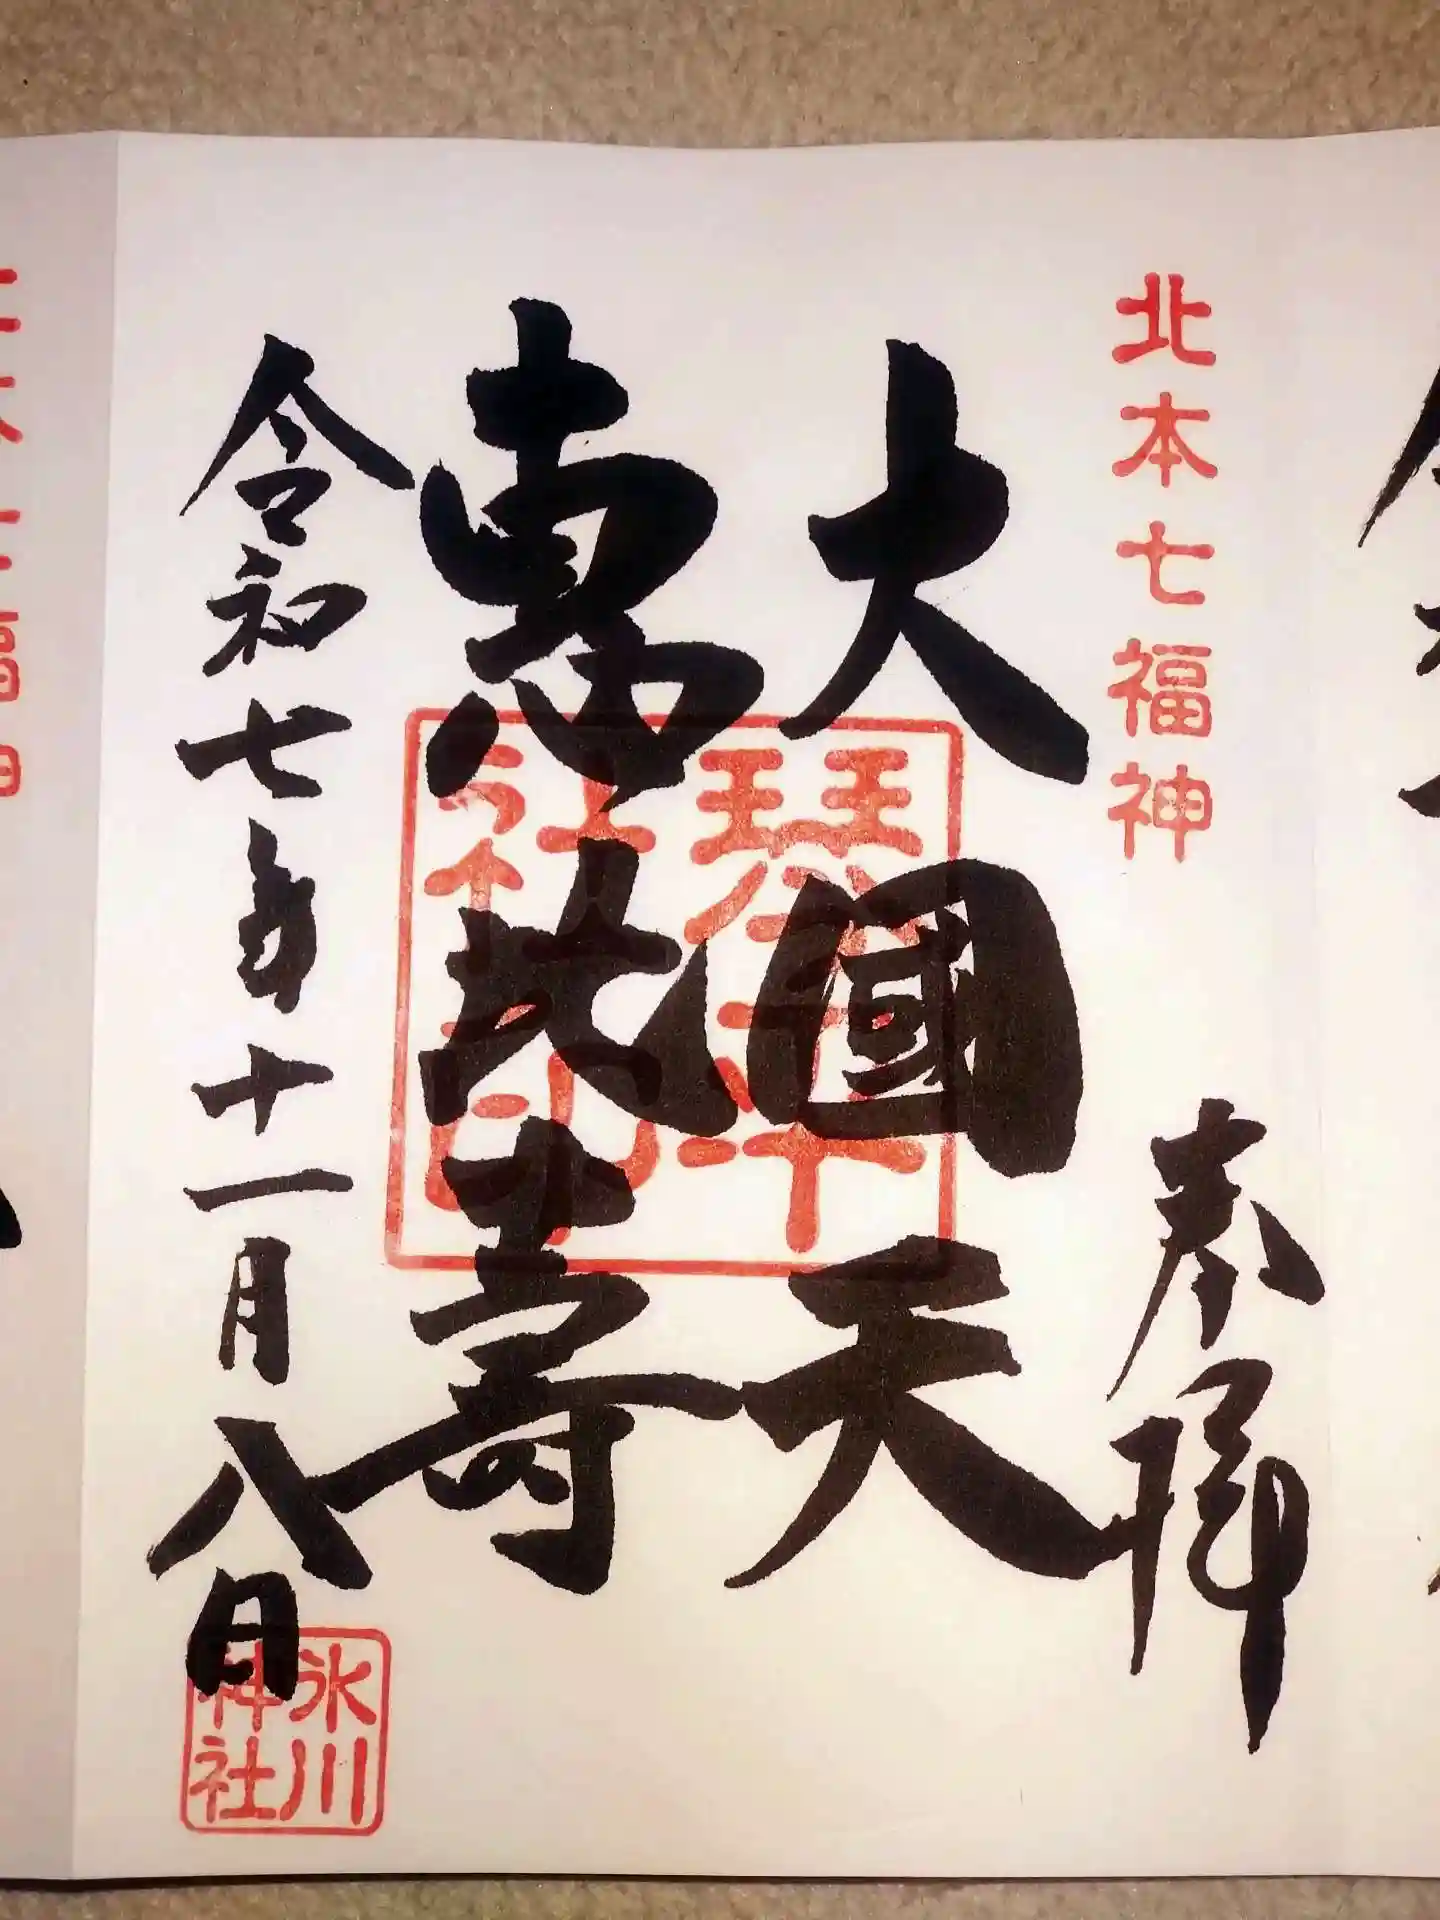 北本七福神
奉拝
大國天
惠比寿
琴平
社印
令和七年十一月八日
氷川
神社